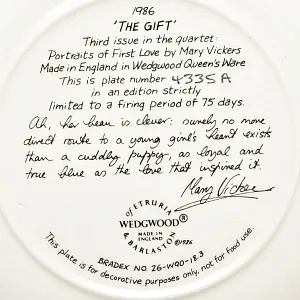 1986
'THE GIFT'
Third issue in the quartet:
Portraits of First Love by Mary Vickers
Made in England in Wedgwood Queen's Ware
This is plate number 4335A
in an edition strictly
limited to a firing period of 75 days.
Ah, her beau is clever: surely no more
direct route to a young girl's heart exists
than a cuddly puppy, as loyal and
true blue as the love that inspired it.
Mary Vickers
of ETRURIA
WEDGWOOD®
MADE IN
ENGLAND
©1986
& BARLASTON
BRADEX NO. 26-W90-18.3
This plate is for decorative purposes only, not for food use.